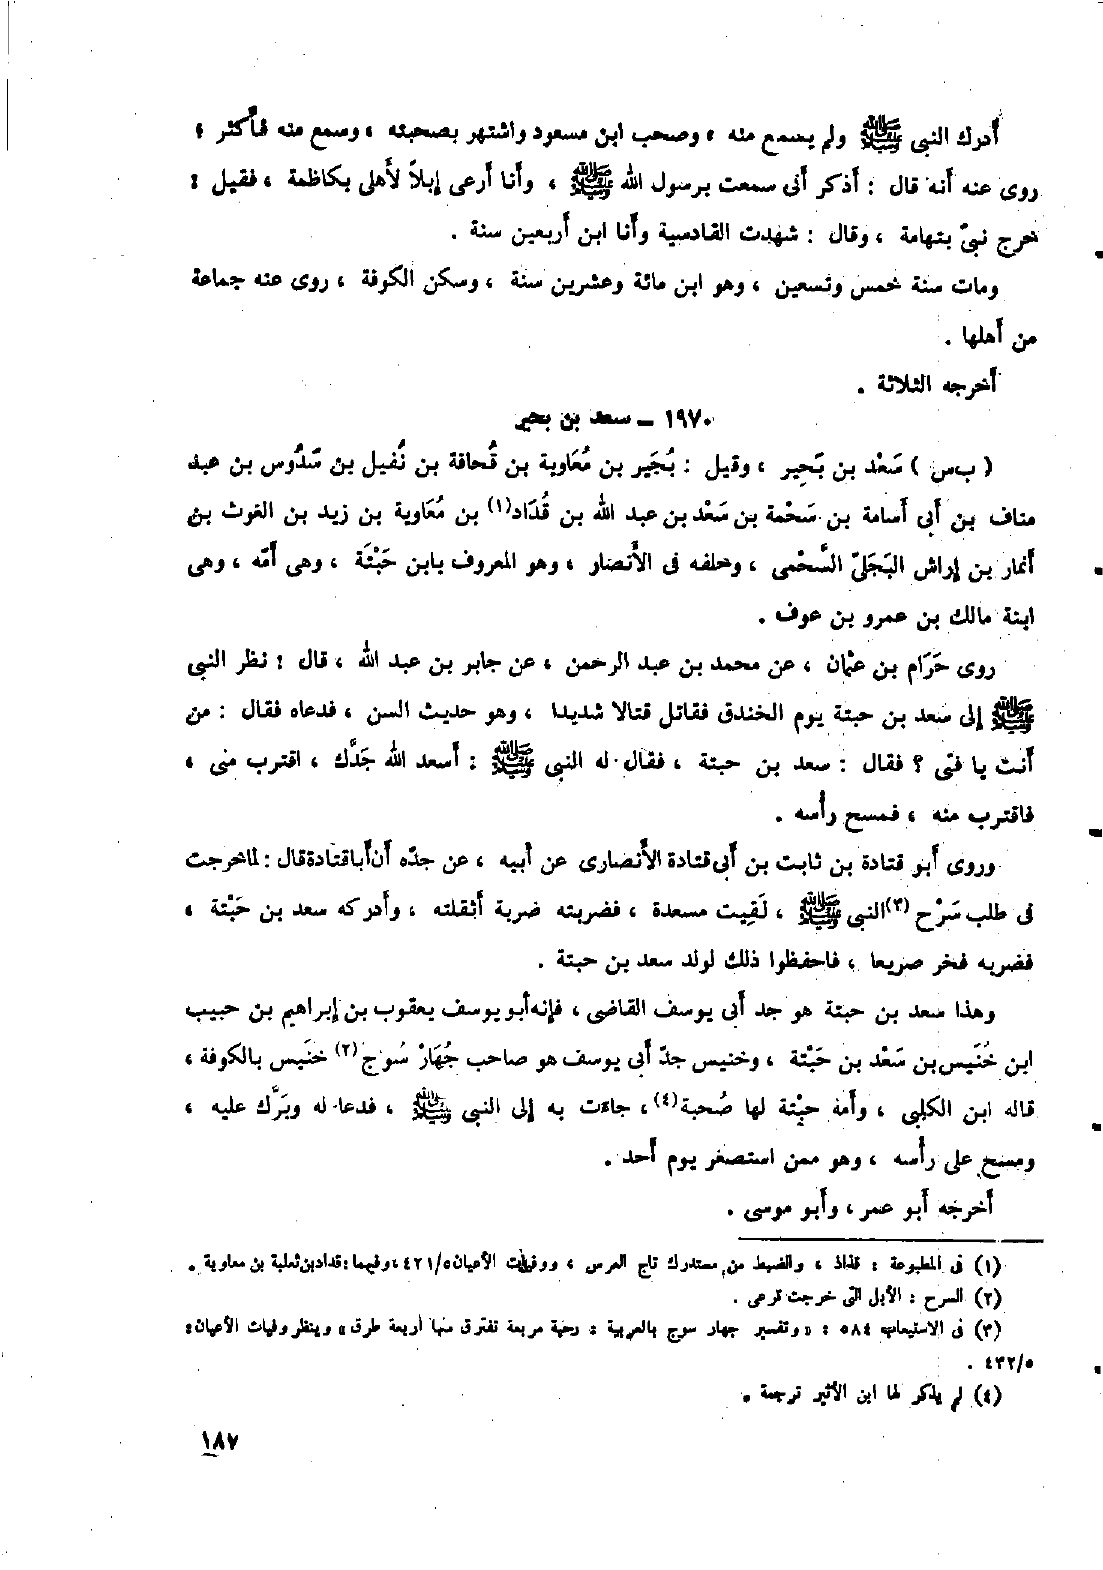 أدرك النبي ﷺ ولم يسمع منه ، وصحب ابن مسعود واشتهر بصحبته ، وسمع منه فأكثر ؛
روى عنه أنه قال : أذكر أنى سمعت برسول الله ﷺ ، وأنا أرعى إبلاً لأهلى بكاظمة ، فقيل :
خرج نبىّ بتهامة ، وقال : شهدت القادسية وأنا ابن أربعين سنة .
ومات سنة خمس وتسعين ، وهو ابن مائة وعشرين سنة ، وسكن الكوفة ، روى عنه جماعة
من أهلها .
أخرجه الثلاثة .
١٩٧٠ ــ سعد بن بحير
( ب س ) سَعْد بن بَحِير ، وقيل : بُجَير بن مُعَاوية بن قُحافة بن نُفَيل بن سَدُوس بن عبد
مناف بن أبى أسامة بن سَحْمة بن سَعْد بن عبد الله بن قُدَاد(١) بن مُعَاوية بن زيد بن الغوث بن
أنمار بن إراش البَجَلىّ السَّحْمى ، وحلفه فى الأنصار ، وهو المعروف بابن حَبْتَة ، وهى أمّه ، وهى
ابنة مالك بن عمرو بن عوف .
روى حَرَام بن عثمان ، عن محمد بن عبد الرحمن ، عن جابر بن عبد الله ، قال : نظر النبى
ﷺ إلى سعد بن حبتة يوم الخندق فقاتل قتالا شديدا ، وهو حديث السن ، فدعاه فقال : من
أنت يا فتى ؟ فقال : سعد بن حبتة ، فقال له النبى ﷺ : أسعد الله جَدَّك ، اقترب منى ،
فاقترب منه ، فمسح رأسه .
وروى أبو قتادة بن ثابت بن أبى قتادة الأنصارى عن أبيه ، عن جدّه أن أبا قتادة قال : لما خرجت
فى طلب سَرْح (٣) النبى ﷺ ، لَقِيت مسعدة ، فضربته ضربة أثقلته ، وأدركه سعد بن حَبْتة ،
فضربه فخر صريعا ، فاحفظوا ذلك لولد سعد بن حبتة .
وهذا سعد بن حبتة هو جد أبى يوسف القاضى ، فإنه أبو يوسف يعقوب بن إبراهيم بن حبيب
ابن خُنَيس بن سَعْد بن حَبْتة ، وخنيس جدّ أبى يوسف هو صاحب جُهَارْ سُوج (٢) خنَيس بالكوفة ،
قاله ابن الكلبى ، وأمه حبْتة لها صُحبة(٤) ، جاءت به إلى النبى ﷺ ، فدعا له وبَرَّك عليه ،
ومسح على رأسه ، وهو ممن استصغر يوم أحد .
أخرجه أبو عمر ، وأبو موسى .
(١) فى المطبوعة : قذاذ ، والضبط من مستدرك تاج العرس ، ووفيات الأعيان ٤٢١/٥ ، وفيهما : قداد بن ثعلبة بن معاوية .
(٢) السرح : الأبل التى خرجت ترعى .
(٣) فى الاستيعاب ٥٨٤ : « وتفسير جهار سوج بالعربية : رحبة مربعة تفترق منها أربعة طرق » وينظر وفيات الأعيان :
٤٢٢/٥ .
(٤) لم يذكر لها ابن الأثير ترجمة .
١٨٧